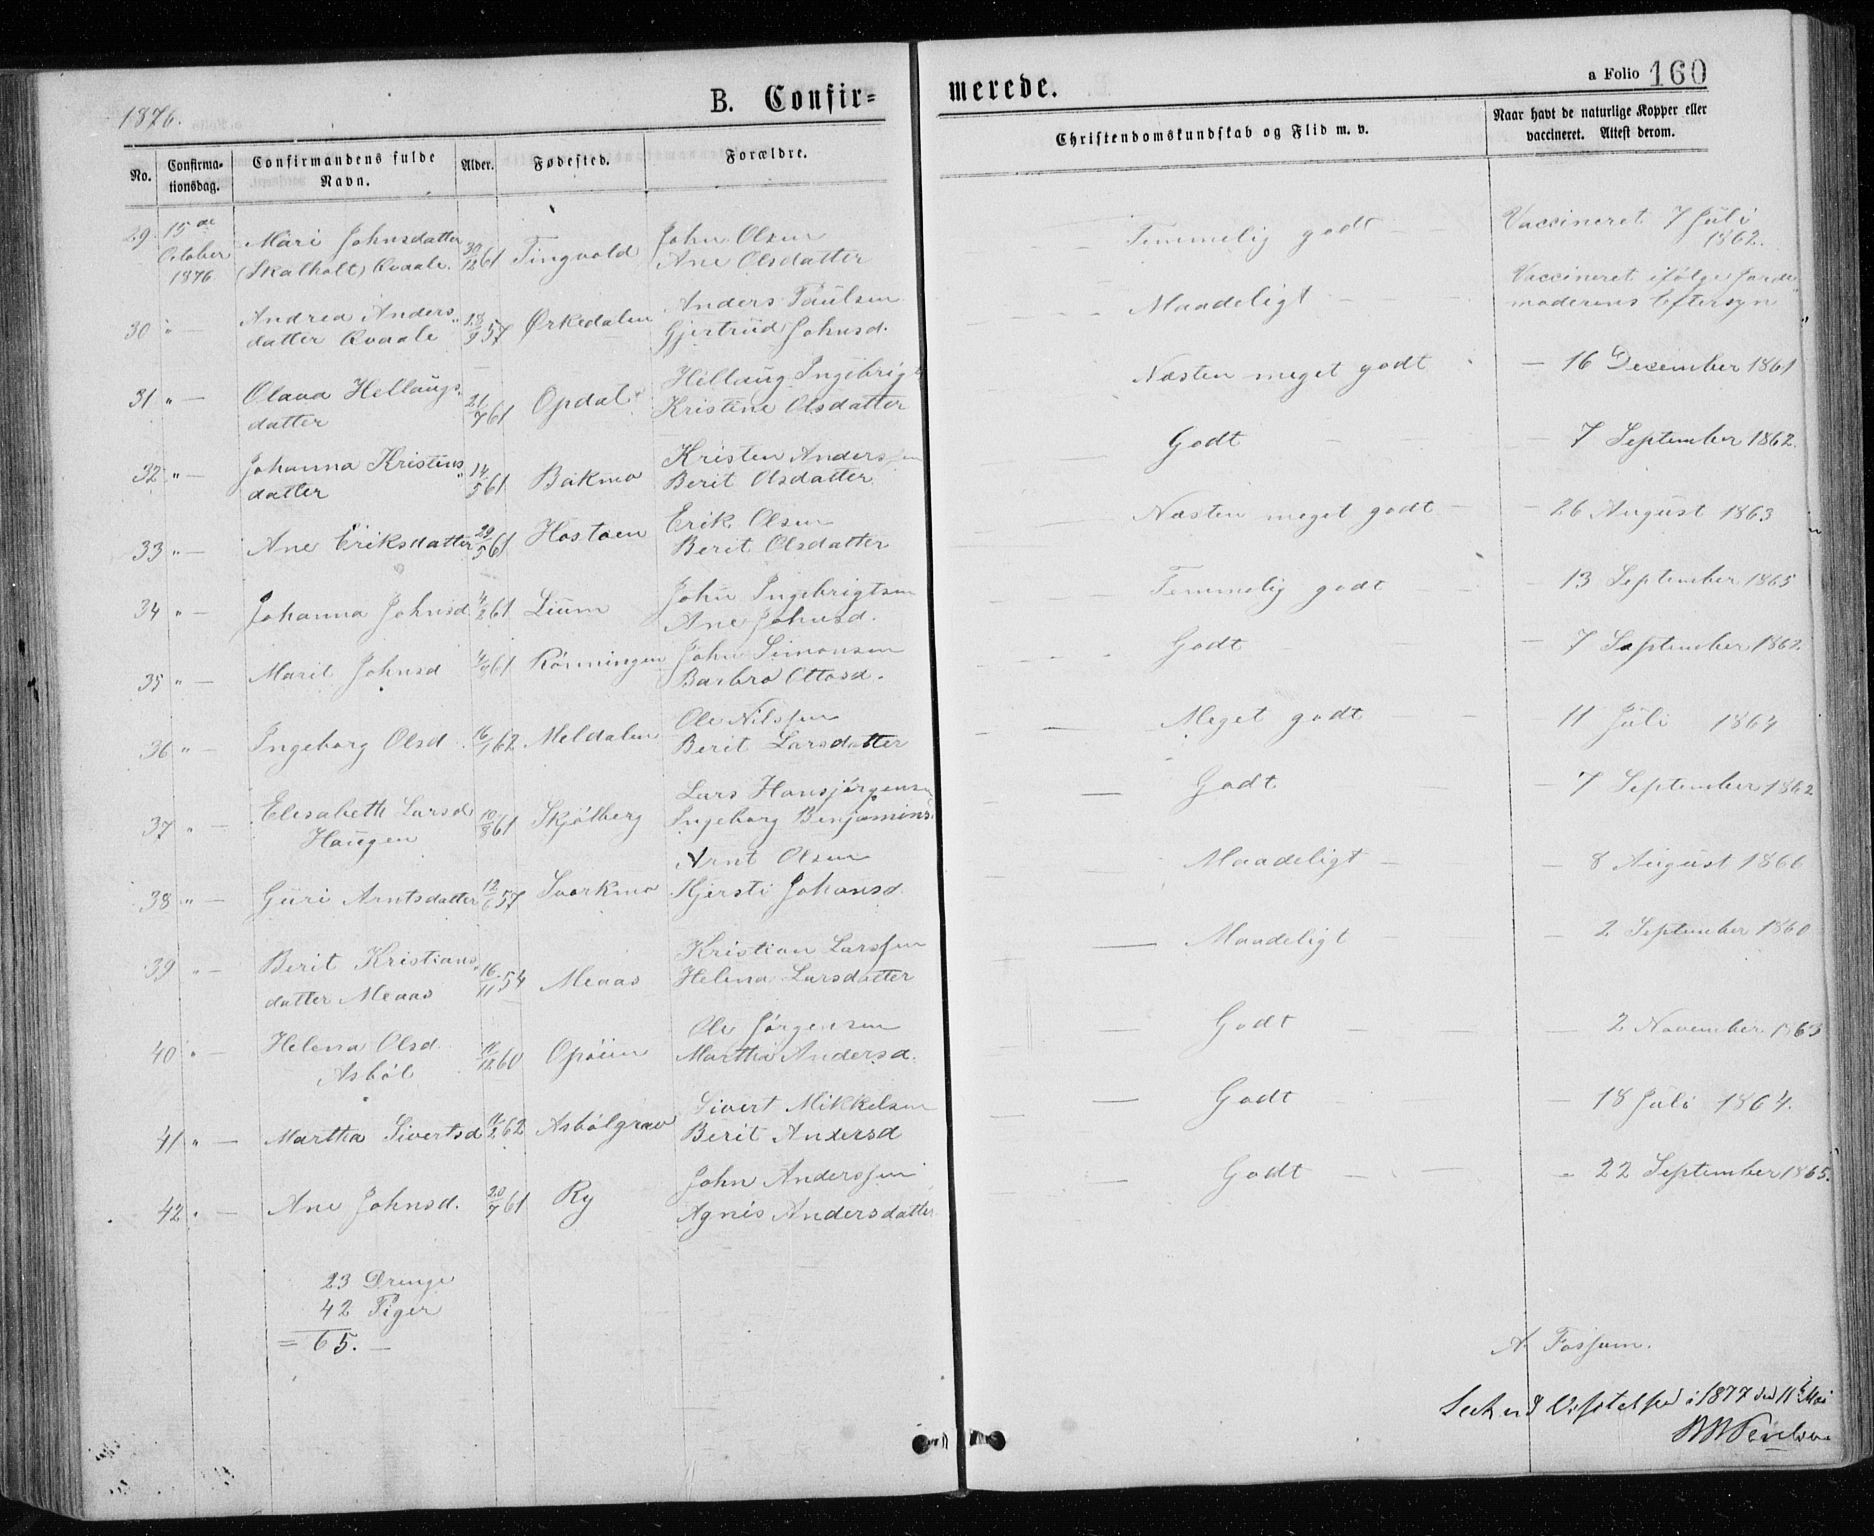 1876.
B. Confir=
merede.
a Folio 160
No.
Confirma-
tionsdag.
Confirmandens fulde
Navn.
Alder.
Fødested.
Forældre.
Christendomskundskab og Flid m. v.
Naar havt de naturlige Kopper eller
vaccineret. Attest derom.
29. 15de Mari Johnsdatter 30/12 61 Tingvold John Olsen Temmelig godt Vaccineret 7 Juli
October (Skalholt) Qvaale. Ane Olsdatter 1862.
1876
30 " Andrea Anders 18/9 57 Ørkedalen Anders Paulsen Maadeligt Vaccineret ifølge Jorde
datter Qvaale Gjertrud Johnsd. moderens Eftersyn
31 " Olava Hellaugs 21/7 61 Opdal Hellaug Ingebrigts Næsten meget godt 16 December 1861
datter Kristine Olsdatter
32 " Johanna Kristens 14/5 61 Bakmo Kristen Anderssen Godt 7 September 1862.
datter Berit Olsdatter
33 " Ane Eriksdatter 29/5 61 Hostoen Erik Olsen Næsten meget godt 26 August 1863
Berit Olsdatter
34 " Johanna Johnsd 4/2 61 Lium John Ingebrigtsen Temmelig godt 13 September 1865
Ane Johnsd.
35 " Marit Johnsd 61 Rønningen John Simonsen Godt 7 September 1862
Barbro Ottosd.
36 " Ingeborg Olsd. 16/1 62 Meldalen Ole Nilssen Meget godt 11 Juli 1864
Berit Larsdatter
37 " Elisabeth Larsd 10/8 61 Skjølberg Lars Hansjørgensen Godt 7 September 1862
Haugen Ingeborg Benjamins.
38 " Guri Arntsdatter 12/6 57 Svorkmo Arnt Olsen Maadeligt 8 August 1860
Kjersti Johansd
39 " Berit Kristians 16/11 54 Meaas Kristian Larssen Maadeligt 2 September 1860
datter Meaas Helena Larsdatter
40 " Helena Olsd. 11/12 60 Opøien Ole Jørgensen Godt 2 November 1863
Asbøl Martha Andersd.
41 " Martha Sivertsd 11/2 62 Asbølgrav Sivert Mikkelsen Godt 18 Juli 1864.
Berit Andersd
42 " Ane Johnsd. 20/7 61 Ry John Anderssen Godt 22 September 1865.
Agnis Andersdatter
23 Drenge
42 Piger
= 65.
A. Fossum.
Seet ved Visitatsen i 1877 den 11te Mai